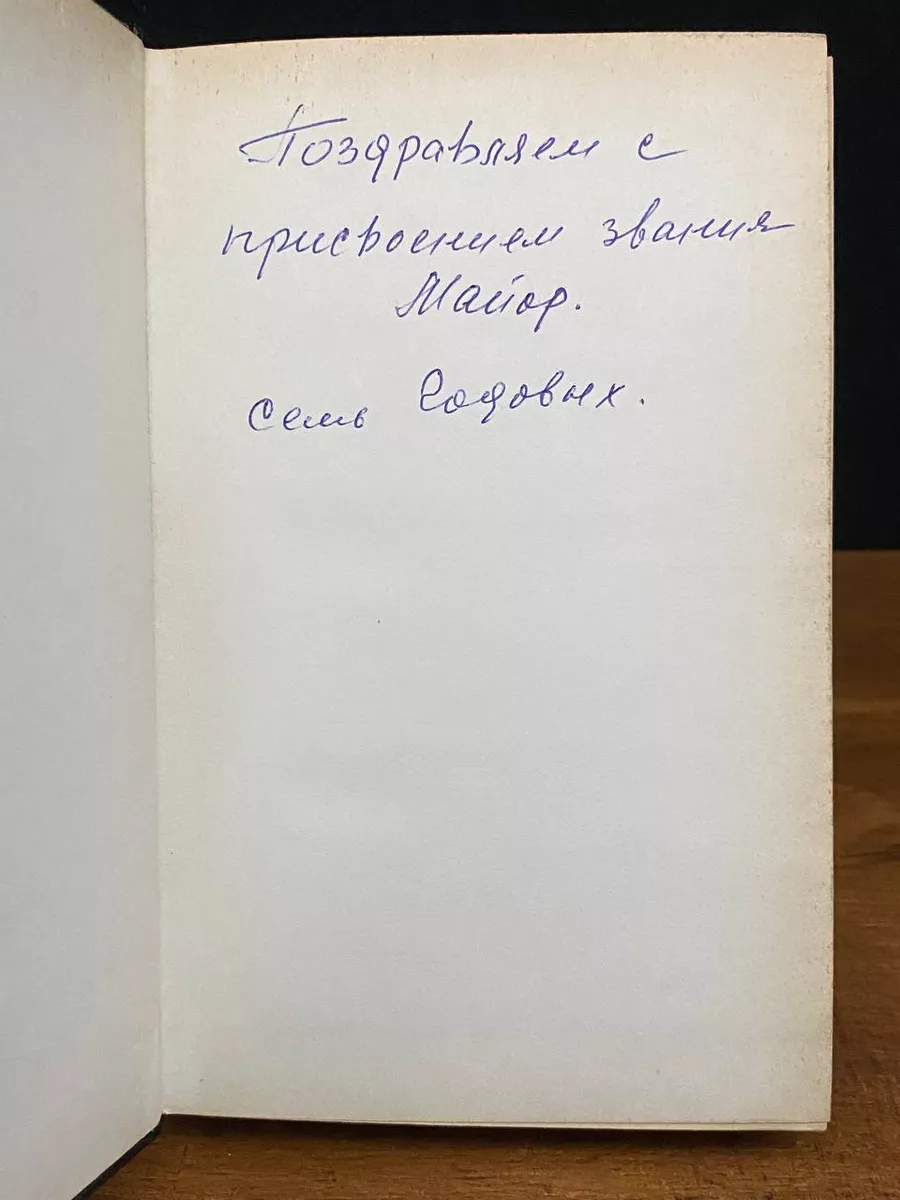 Поздравляем с
присвоением звания
Майор.
семь Садовых.